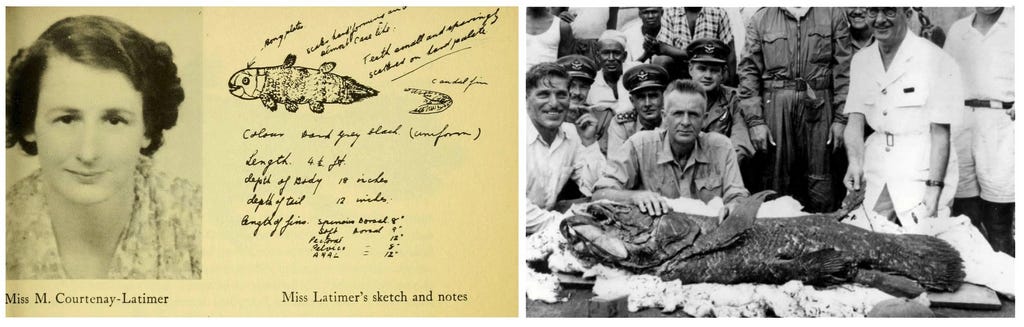 bony plates
scales hard forming an
almost case like.
Teeth small and sparingly
scattered on hard palate
caudal fin
Colour hard grey black (uniform)
Length. 4½ ft.
depth of Body 18 inches
depth of tail 12 inches.
length of fins. Spinous Dorsal 8"
Soft Dorsal 9"
Pectoral 12"
Pelvics = 8"
ANAL = 12"
Miss M. Courtenay-Latimer
Miss Latimer's sketch and notes